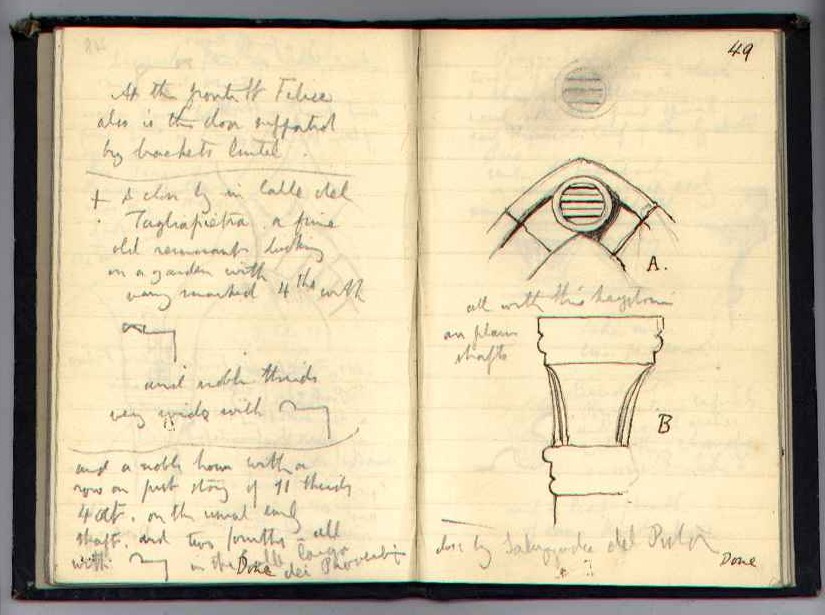 At the front of St Felice
also is the door supported
by brackets lintel.
+ & close by in Calle del
Tagliapietra. a fine
old remnant looking
on a garden with
very marked 4ths with
and noble thirds
very wide with
and a noble house with a
row on first story of 11 thirds
4 at. on the usual early
shaft. and two fourths - all
with in the Calle lunga
Done dei Proverbi
49
A.
all with this keystone
on plain
shafts
B
close by del
Done